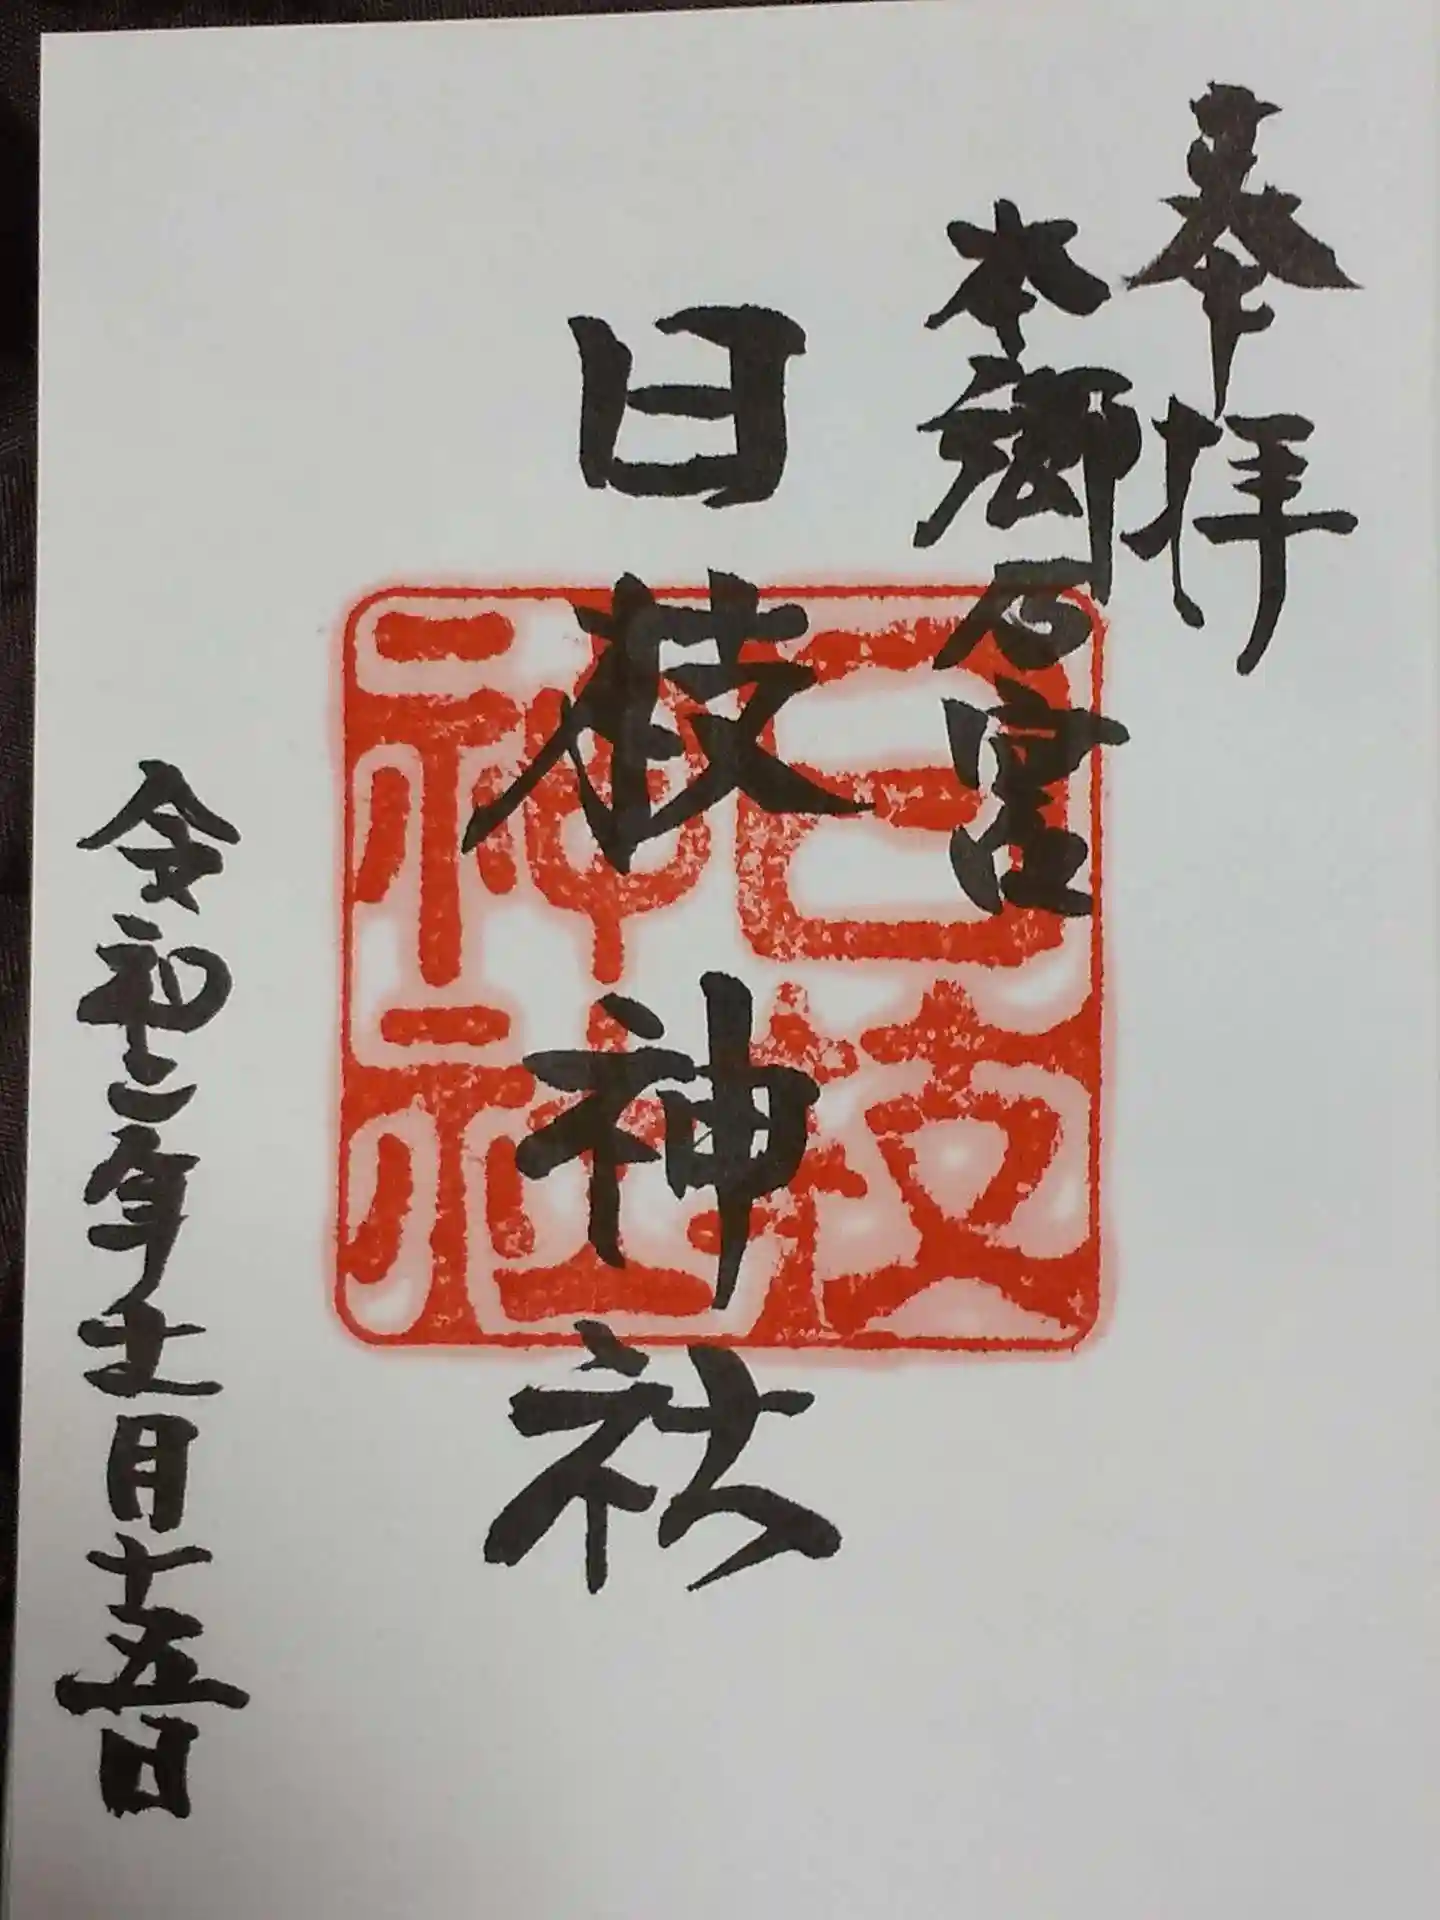 奉拝
本郷乃宮
日枝神社
日枝神社
令和二年十二月十五日